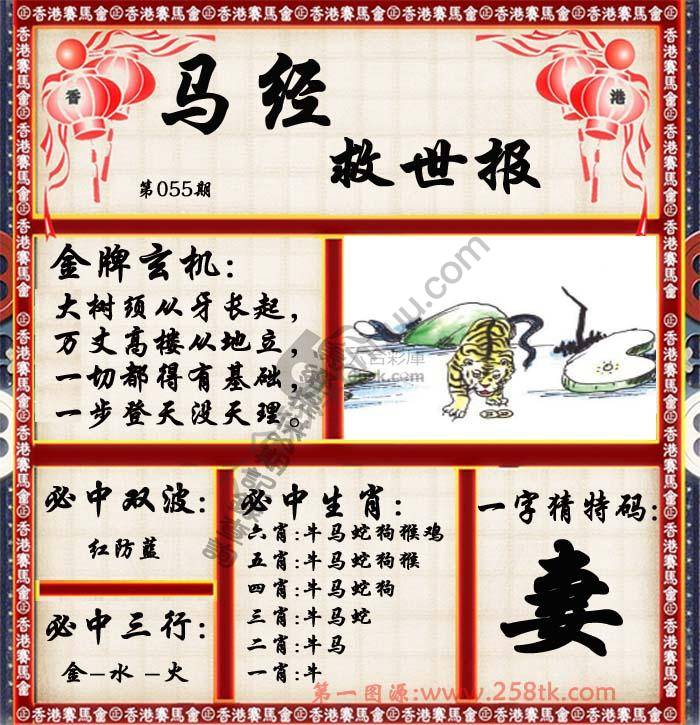 香港賽馬會
香
港
马经
救世报
第055期
金牌玄机：
大树须从牙长起，
万丈高楼从地立，
一切都得有基础，
一步登天没天理。
必中双波：
红防蓝
必中三行：
金-水-火
必中生肖：
六肖：牛马蛇狗猴鸡
五肖：牛马蛇狗猴
四肖：牛马蛇狗
三肖：牛马蛇
二肖：牛马
一肖：牛
一字猜特码：
妻
第一图源：www.258tk.com